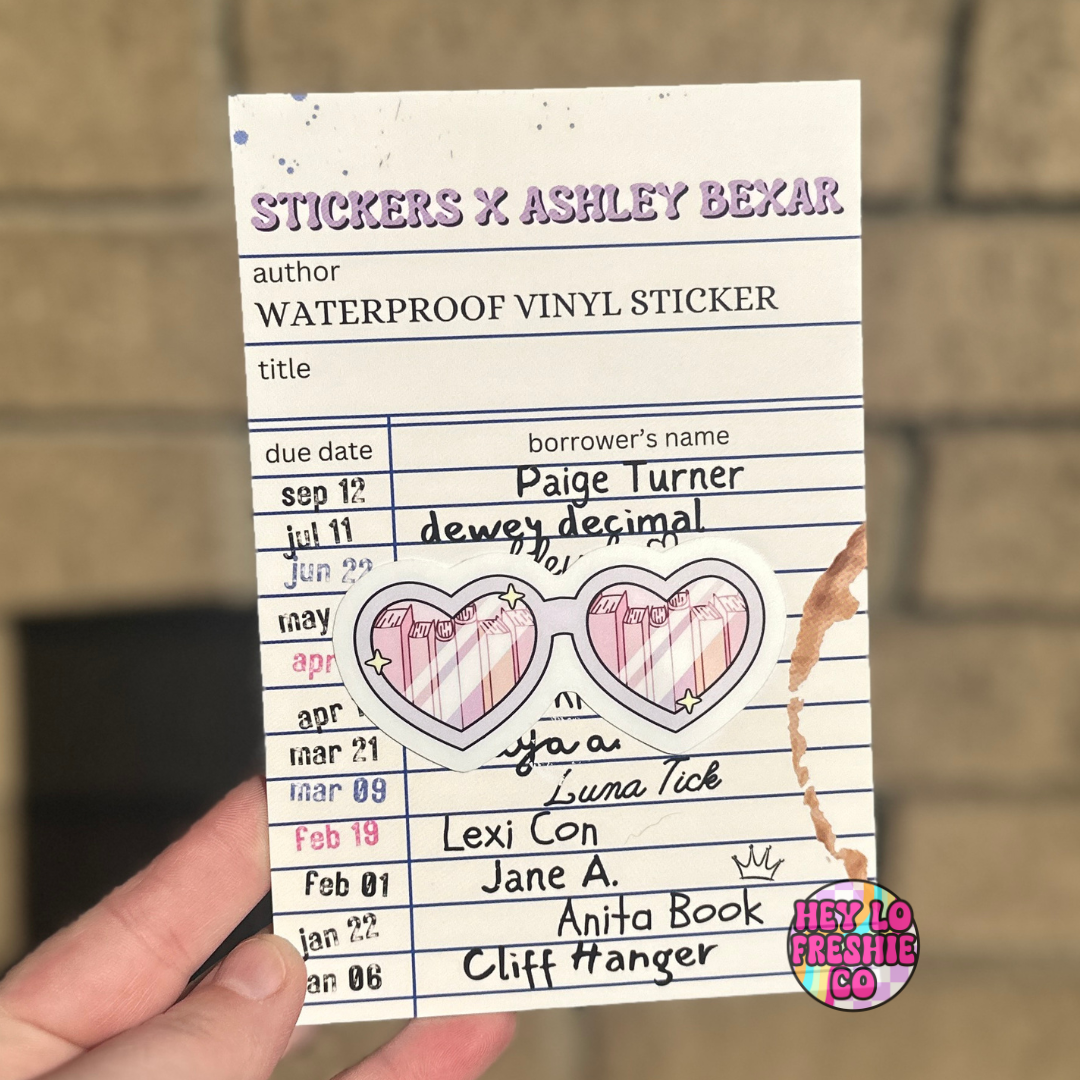 STICKERS X ASHLEY BEXAR
author
WATERPROOF VINYL STICKER
title
due date borrower's name
sep 12 Paige Turner
jul 11 dewey decimal
jun 22
may
apr
apr
mar 21
mar 09 Luna Tick
Feb 19 Lexi Con
Feb 01 Jane A.
jan 22 Anita Book
an 06 Cliff Hanger
HEY LO
FRESHIE
CO